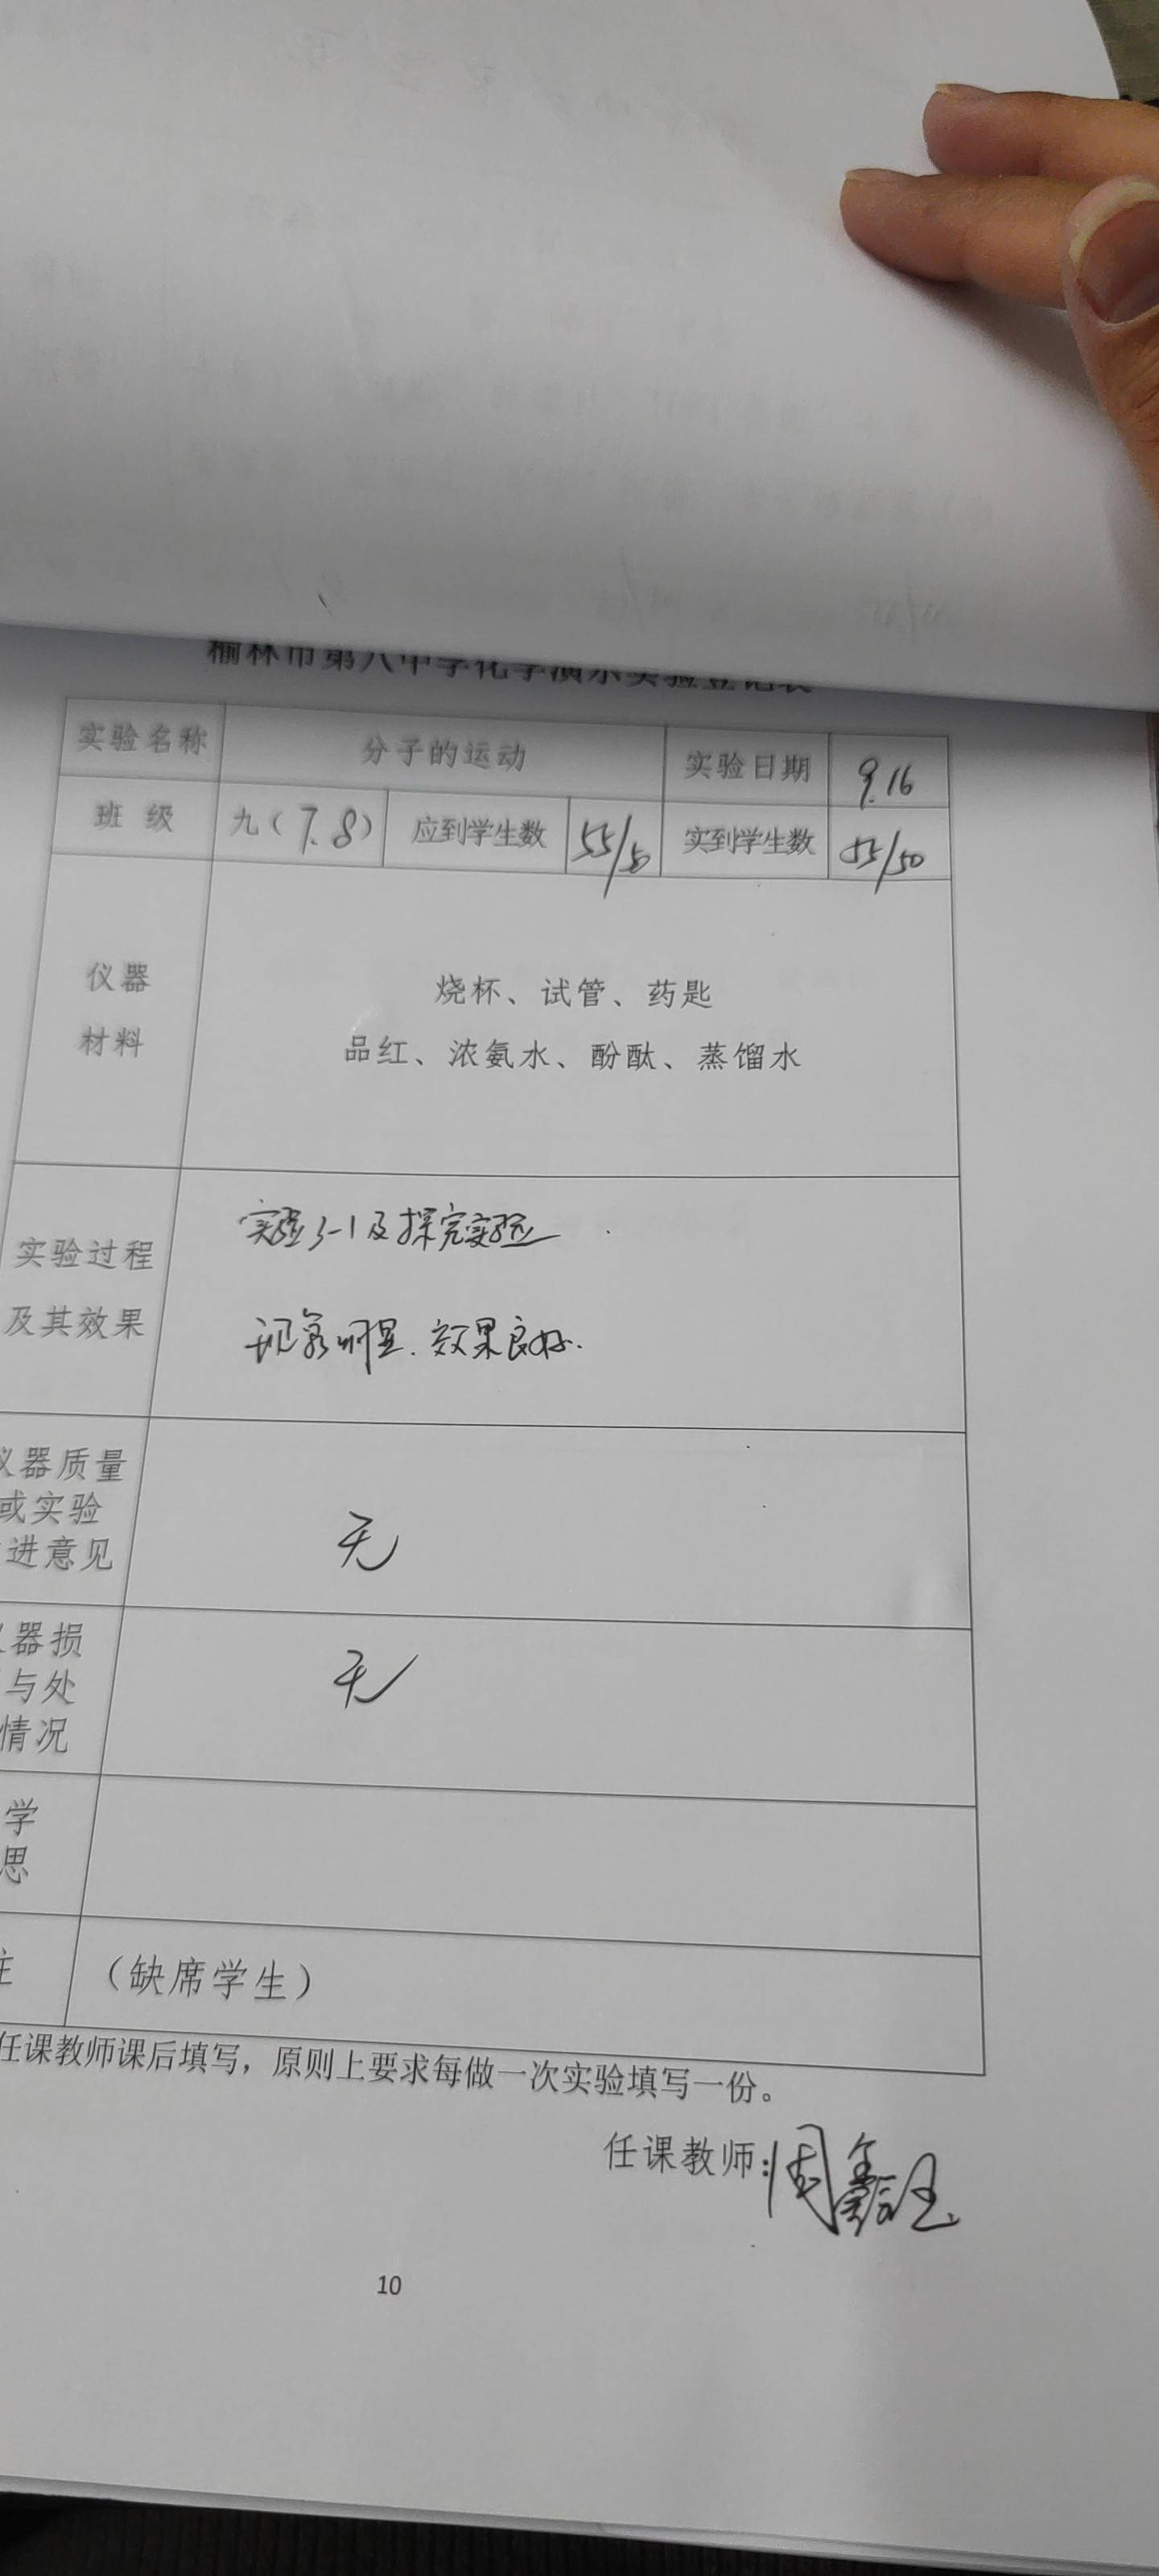 榆林市第八中学化学演示实验登记表
实验名称 分子的运动 实验日期 9.16
班 级 九（7.8） 应到学生数 55/50 实到学生数 55/50
仪器
材料
烧杯、试管、药匙
品红、浓氨水、酚酞、蒸馏水
实验过程
及其效果
实验3-1及探究实验
现象明显.效果良好.
仪器质量
或实验
进意见
无
器损
与处
情况
无
学
思
注
（缺席学生）
任课教师课后填写，原则上要求每做一次实验填写一份。
任课教师:周鑫
10